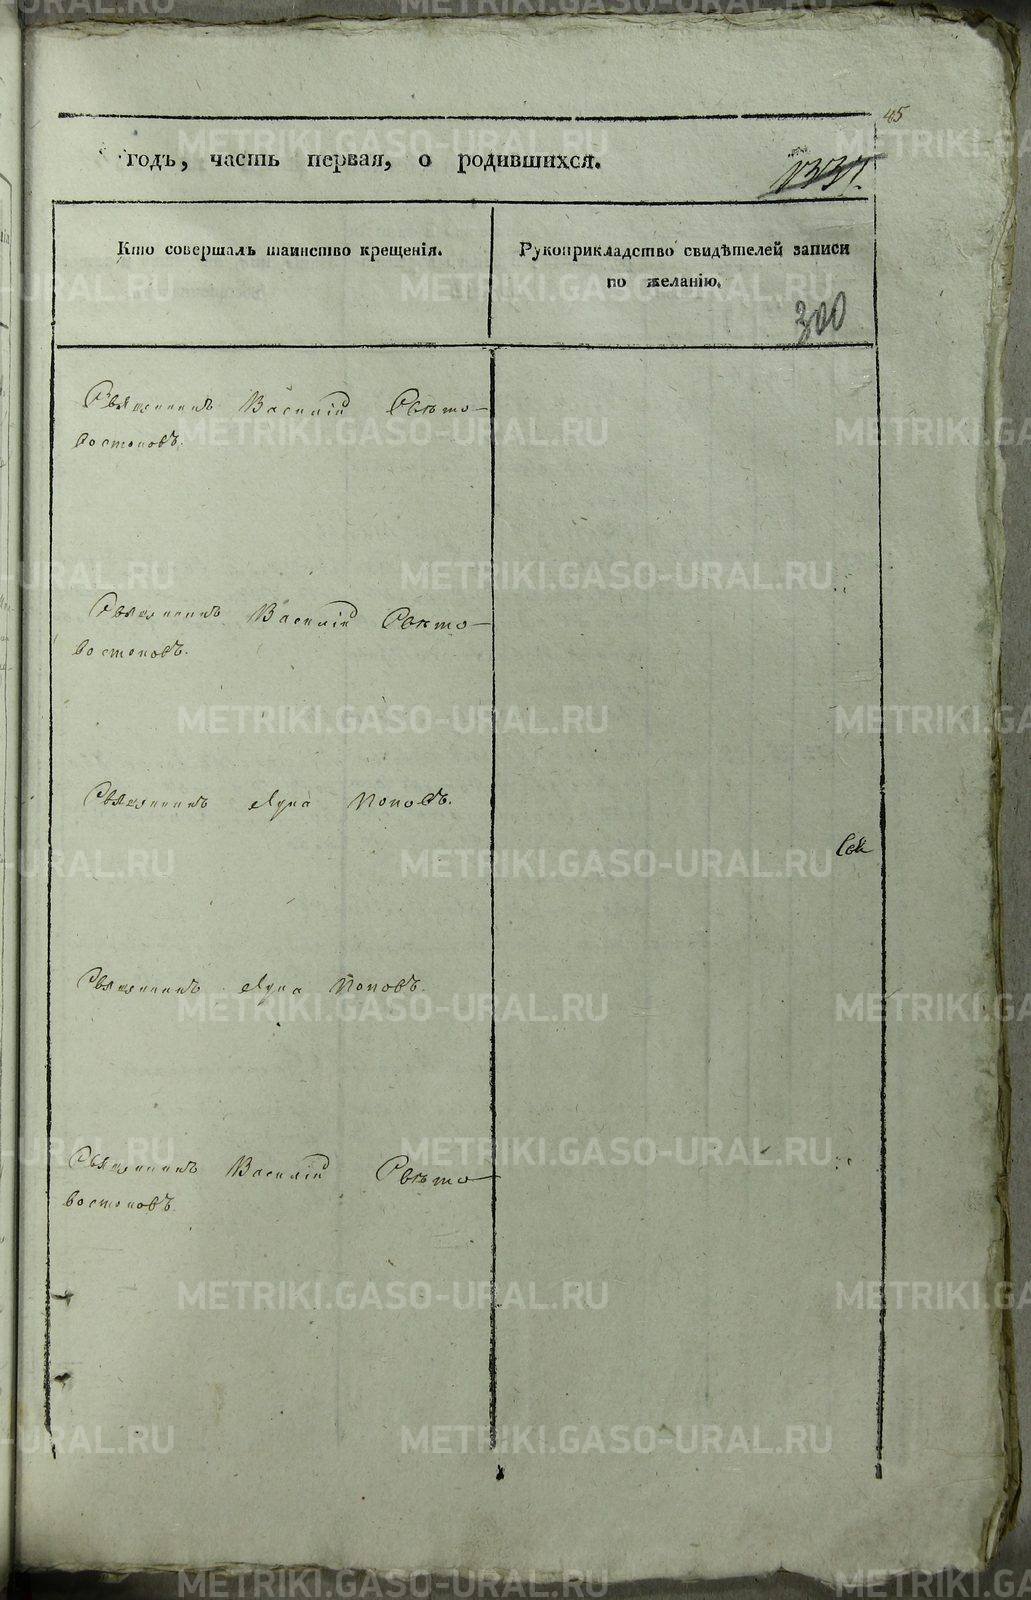 45
годъ, часть первая, о родившихся.
1337.
Кто совершалъ таинство крещенія.
Рукоприкладство свидѣтелей записи
по желанію.
300
Священникъ Василій Свѣто-
востоковъ.
Священникъ Василій Свѣто-
востоковъ.
Священникъ Лука Поповъ.
Священникъ Лука Поповъ.
Священникъ Василій Свѣто-
востоковъ.
METRIKI.GASO-URAL.RU